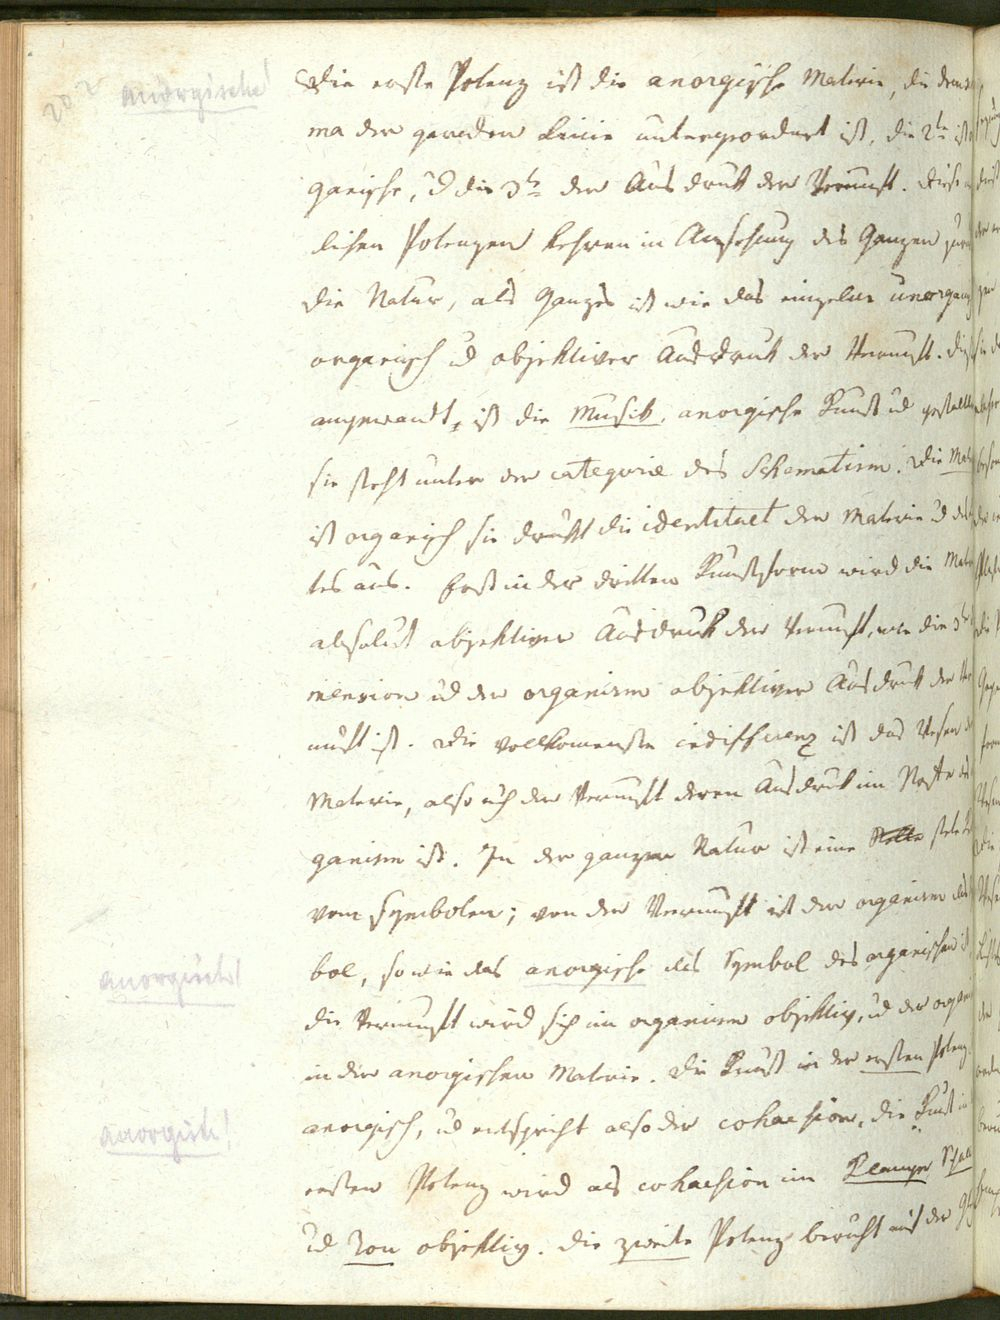 202
anorgische!
Die erste Potenz ist die anorgische Materie, die dem Sche
ma der geraden Linie untergeordnet ist, die 2te ist
ganische, ud die 3te der Ausdruk der Vernunft. Diese
lichen Potenzen kehren in Ansehung des Ganzen zurü
die Natur, als Ganzes ist wie das einzelne unorgan
organisch ud objektiver Ausdruk der Vernunft. Dieß
angewandt, ist die Musik, anorgische Kunst ud
sie steht unter der categorie des Schematism. Die Mal
ist organisch sie drükt die identitaet der Materie ud des
tes aus. Erst in der dritten Kunstform wird die Mate
absolut objektiver Ausdruk der Vernunft, wie die 3te
mension ud der organism objektiver Ausdruk der Ver
nunft ist. Die vollkomenste indifferenz ist das Wesen der
Materie, also auch der Vernunft deren Ausdruk im
ganism ist. In der ganzen Natur ist eine Stelle stete
von Symbolen; von der Vernunft ist der organism das
bol, so wie das anorgische das Symbol des organischen ist,
anorgisch!
die Vernunft wird sich im organism objektiv, ud der organ
in der anorgischen Materie. Die Kunst in der ersten Potenz
anorgisch!
anorgisch, ud entspricht also der cohaesion, die Kunst in
ersten Potenz wird als cohaesion im Klange Schall
ud Ton objektiv. die zweite Potenz beruht auf der